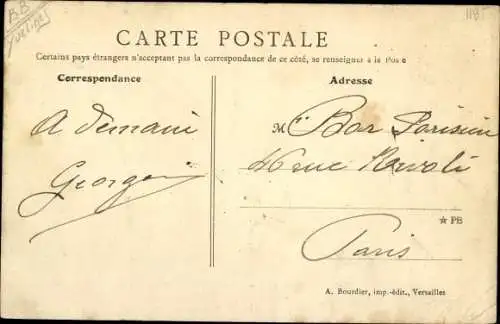 BB
Yvelines
CARTE POSTALE
Certains pays étrangers n'acceptant pas la correspondance de ce côté, se renseigner à la Poste
Correspondance
Adresse
A demain
Georges
M
Bar Parisien
46 rue Rivoli
★ PB
Paris
A. Bourdier, imp.-édit., Versailles